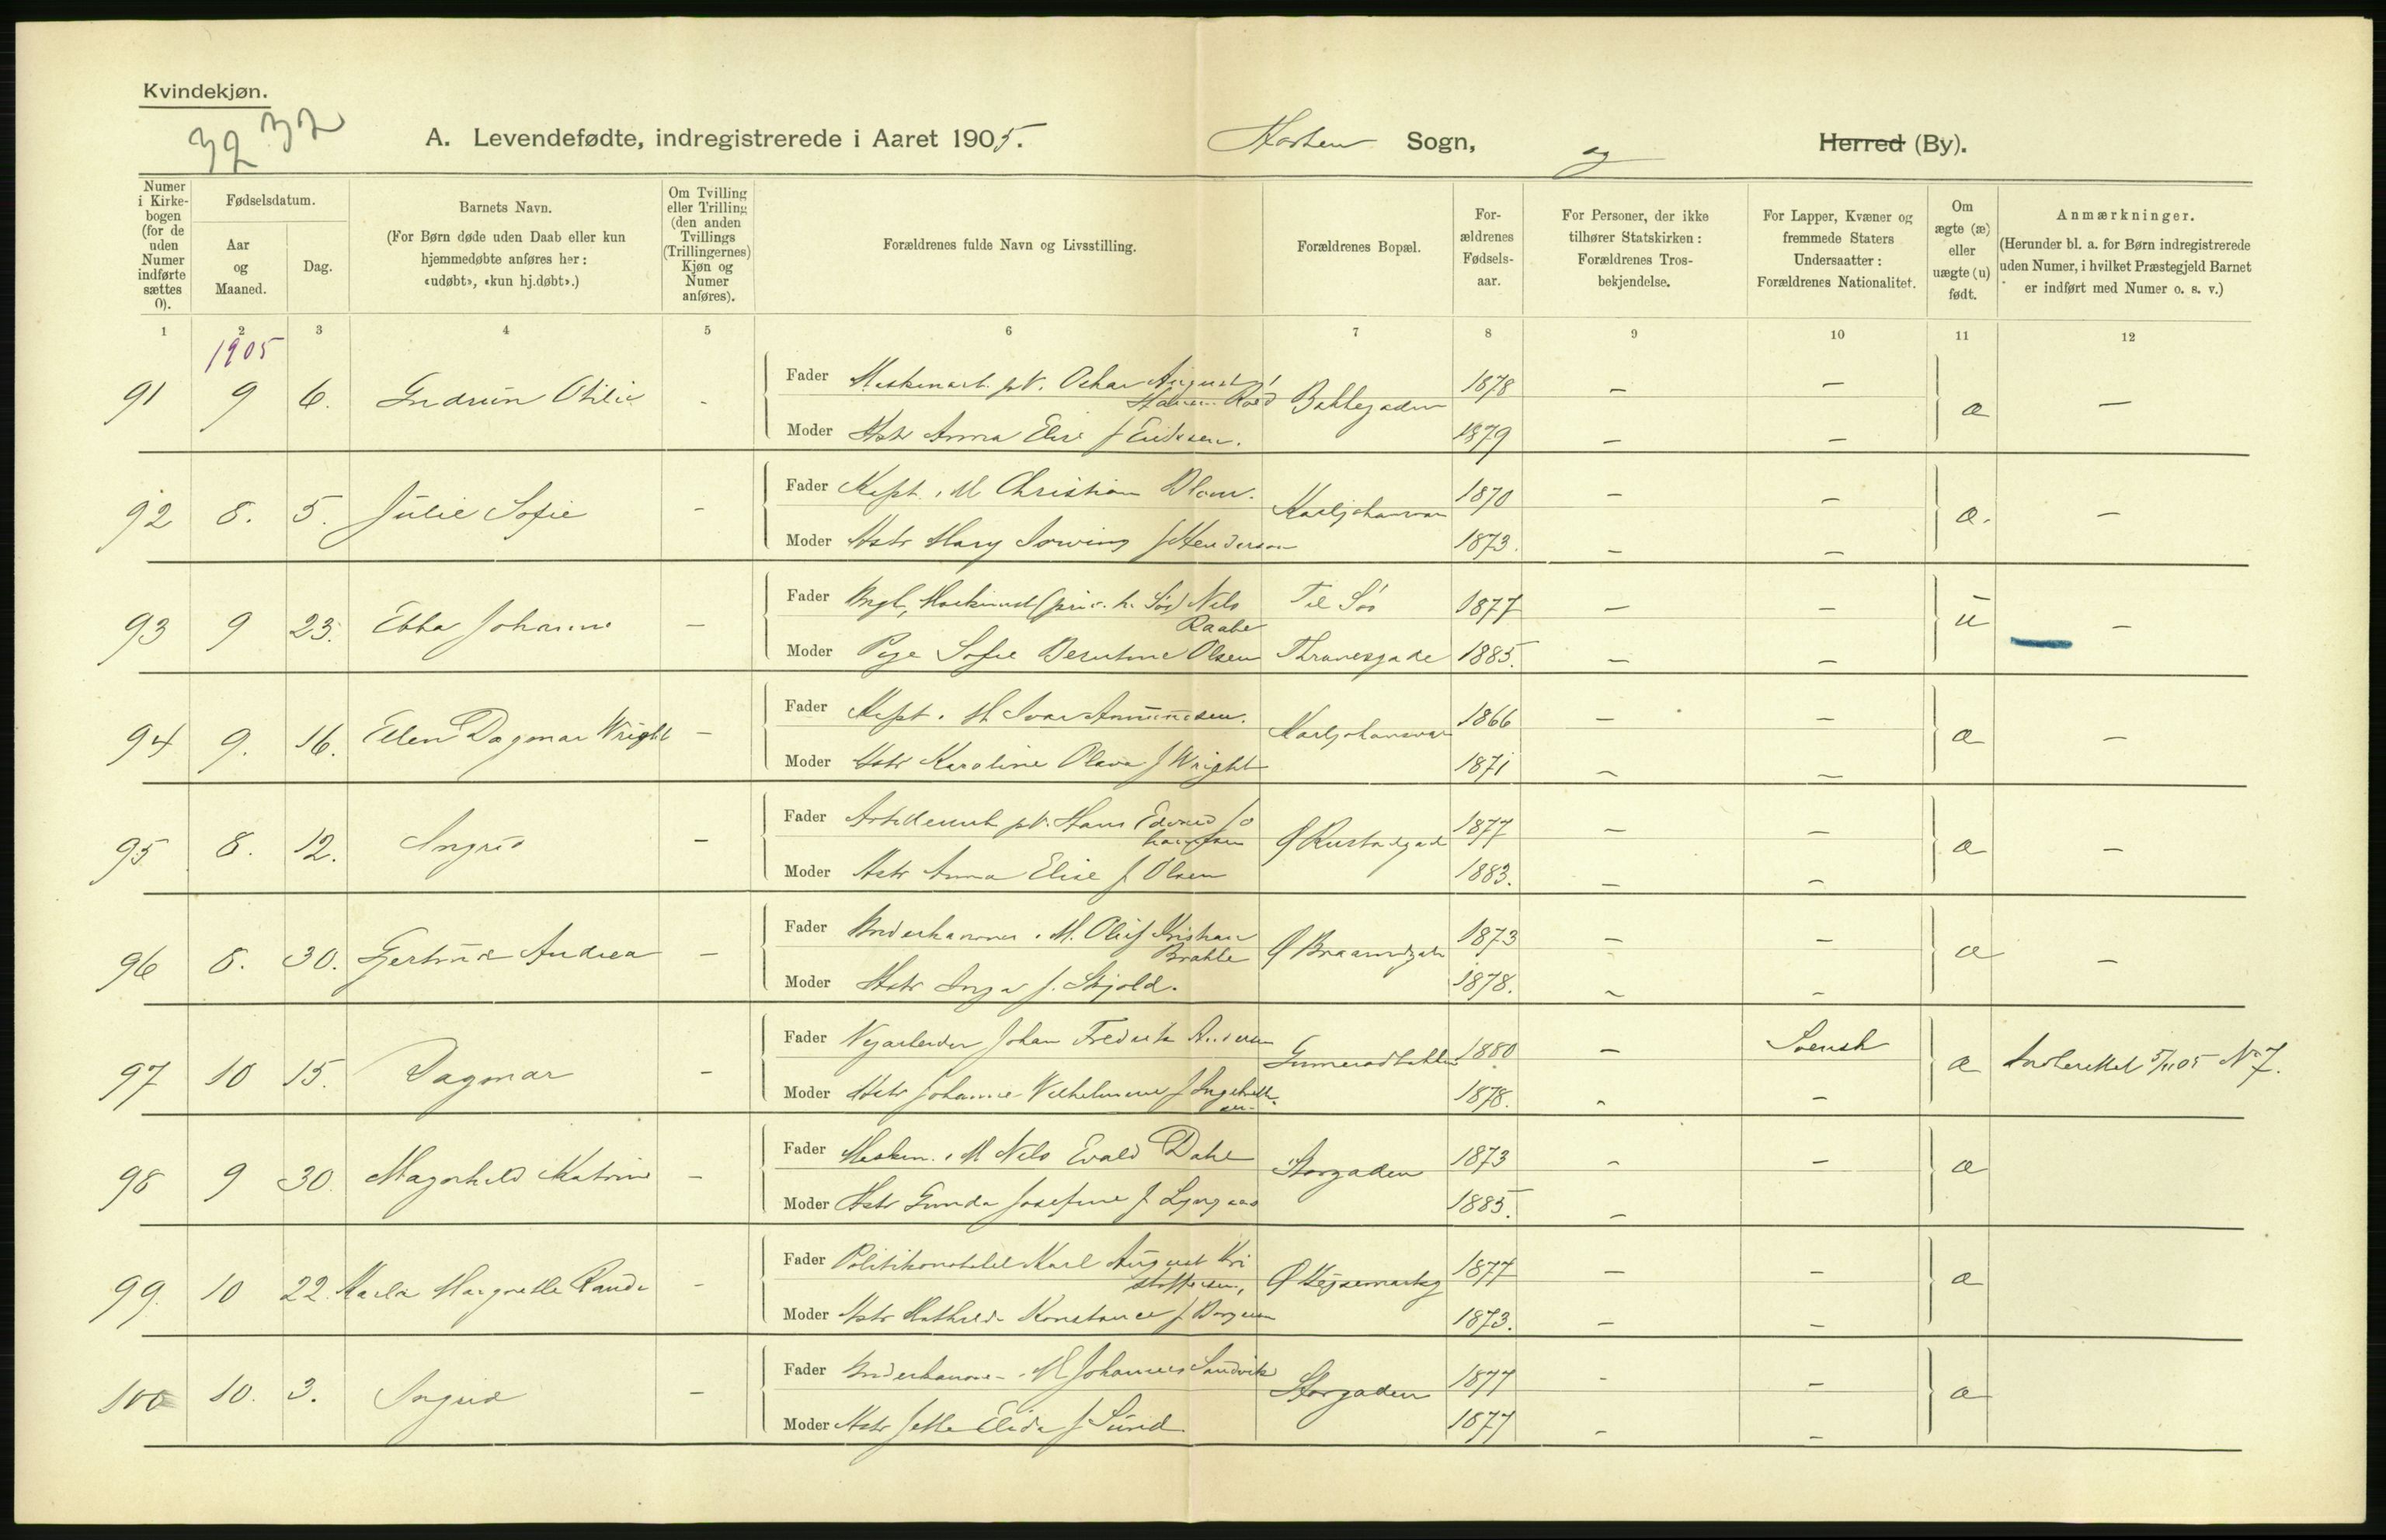 Kvindekjøn.
32 32
A. Levendefødte, indregistrerede i Aaret 1905.
Horten Sogn, og Herred (By).
Numer i Kirkebogen (for de uden Numer indførte sættes 0).
Fødselsdatum.
Aar og Maaned.
Dag.
Barnets Navn.
(For Børn døde uden Daab eller kun hjemmedøbte anføres her: «udøbt», «kun hj.døbt».)
Om Tvilling eller Trilling (den anden Tvillings (Trillingernes) Kjøn og Numer anføres).
Forældrenes fulde Navn og Livsstilling.
Forældrenes Bopæl.
Forældrenes Fødselsaar.
For Personer, der ikke tilhører Statskirken: Forældrenes Trosbekjendelse.
For Lapper, Kvæner og fremmede Staters Undersaatter: Forældrenes Nationalitet.
Om ægte (æ) eller uægte (u) født.
Anmærkninger.
(Herunder bl. a. for Børn indregistrerede uden Numer, i hvilket Præstegjeld Barnet er indført med Numer o. s. v.)
1 2 3 4 5 6 7 8 9 10 11 12
1905
91 9 6. Gudrun Otilie - Fader Maskinarb. pV. Oskar August Bakkegaden 1878 – – æ –
Moder Hstr Anna Elise f Eriksen. 1879 – –
92 8. 5. Julie Sofie - Fader Kapt. i M Christian Blom. Karljohansvern 1870 – – æ. –
Moder Hstr Mary Irwing f Henderson 1873. – –
93 9 23. Ebba Johanne - Fader Maskinist (priv. t. Søs) Nils Raabe Til Søs 1877 – – u –
Moder Pige Sofie Berntine Olsen Thranesgade 1885. – –
94 9. 16. Ellen Dagmar Wright - Fader Kapt. i M Ivar Amundsen. Karljohansvern 1866 – – æ –
Moder Hstr Karoline Olava f Wright 1871 – –
95 8. 12. Ingrid - Fader pV. Hans Edvard Johansen Ø Rustadgade 1877 – – æ –
Moder Hstr Anna Elise f. Olsen 1883. – –
96 8. 30. Gertrud Andrea - Fader Underkanoner i M. Oluf Kristian Ø 1873 – – æ –
Moder Hstr Inga f. Skjold. 1878. – –
97 10 15. Dagmar - Fader Vejarbeider Johan Fredrik 1880 – Svensk æ Indberettet 5/11 05 No 7.
Moder Hstr Johanne Vilhelmine f Ingebretsen. 1878. - –
98 9 30. Magnhild Katrine - Fader Maskin. i M Nils Evald Dahl Storgaden 1873 – – æ
Moder Hstr Gunda Josefine f. 1885. –
99. 10 22. Karla Margrethe Randi - Fader Politikonstabel Karl August Kristoffersen, Ø 1877 – – æ
Moder Hstr Mathilde Konstance f Borgersen 1873. – –
100 10. 3. Ingrid - Fader Underkanoner i M Johannes Sandvik Storgaden 1877 - – æ
Moder Hstr Jette Elida f Sund 1877 – –